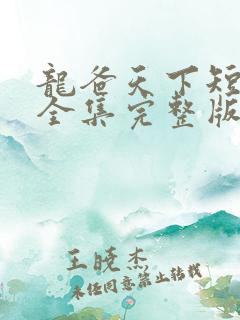 龍爸天下短
全集完整版
王晓杰
未任同意禁止转载